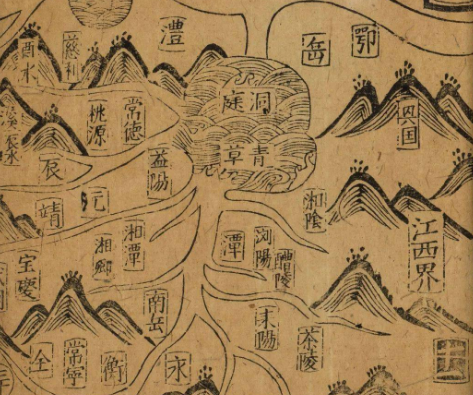 鄂
岳
澧
慈利
酉水
洞庭
青草
常德
桃源
益陽
辰
靖
湘陰
江西界
潭
浏陽
醴陵
湘潭
湘鄉
宝慶
南岳
耒陽
茶陵
永
衡
常寧
全